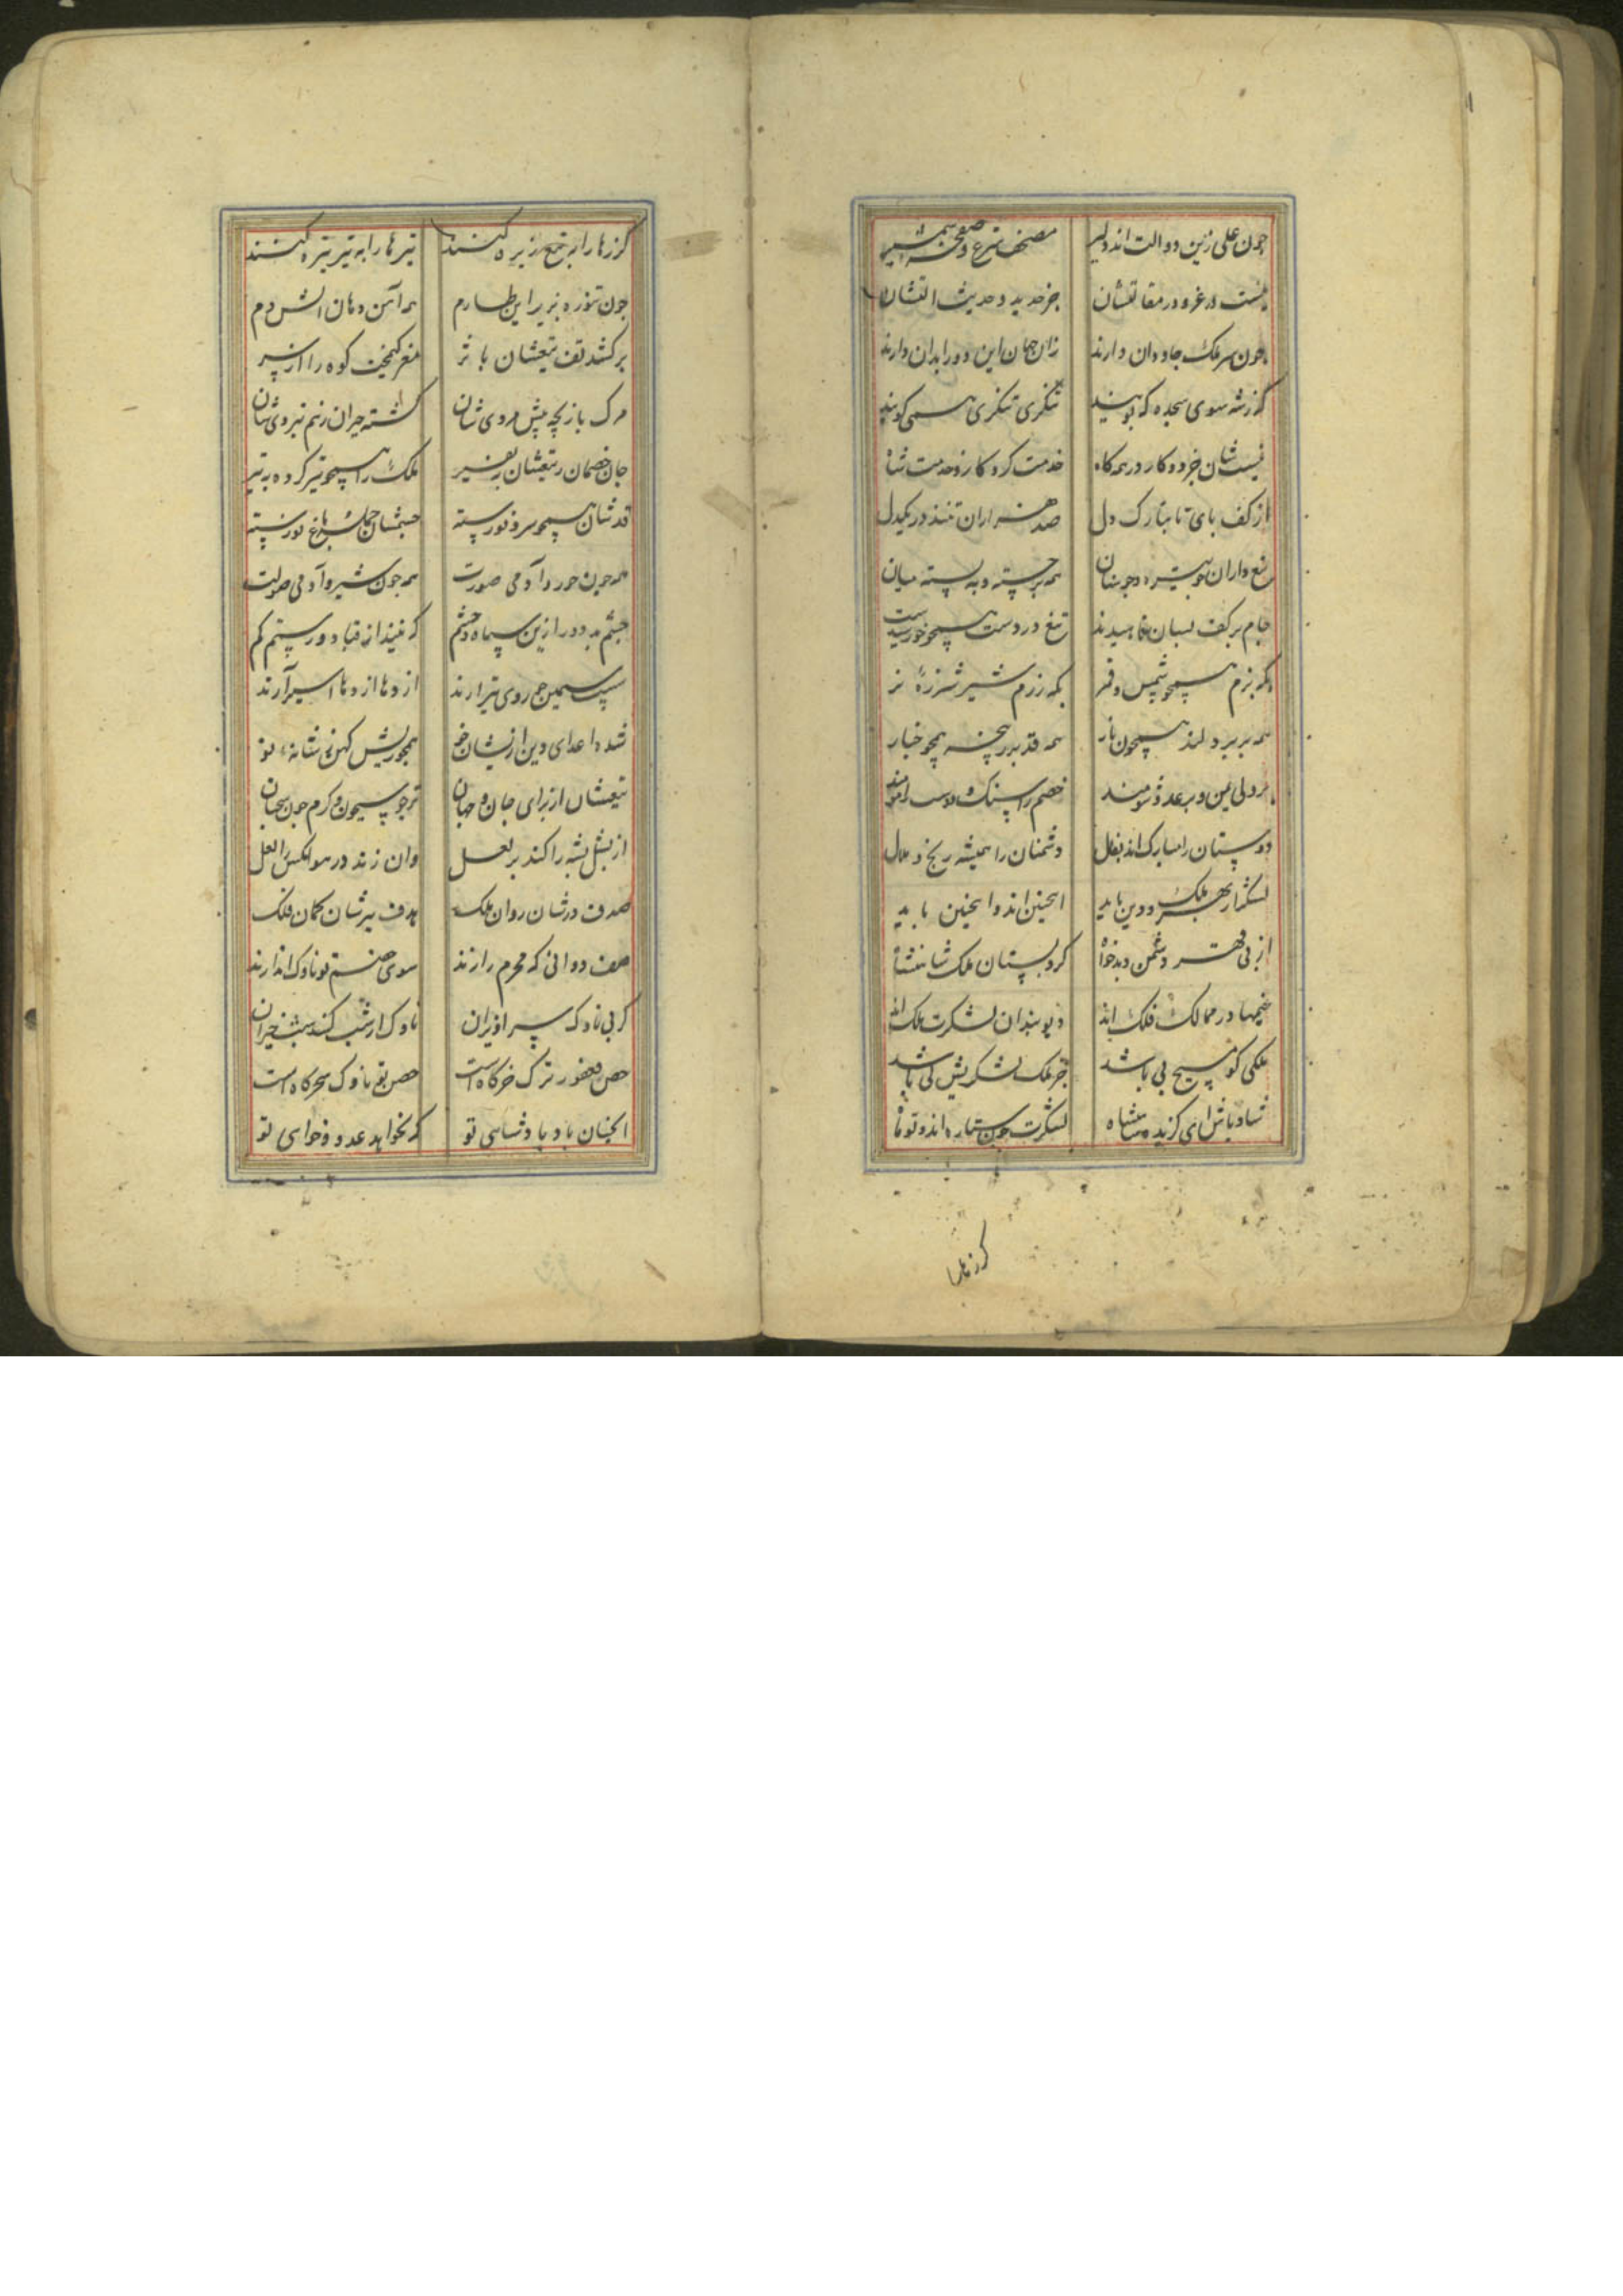 چون علی زین دو الت اند دلیر مصحف شرع و صفحه شمشیر
نیست در غزو در مقاتلشان جز حدید و حدیث التشان
چون سر ملک جاودان دارند زان جهان این دو را بدان دارند
کرزشه سوی سجده که پویند تنکری تنکری همی کویند
نیست شان جز دو کار در همه کاه خدمت کردکار و خدمت شاه
از کف پای تا بتارک دل صد هزاران تنند در یکدل
تیغ داران همه جسته و به بسته میان
جام بر کف بسان ناهیدند تیغ در دست همچو خورشیدند
بکه بزم همچو شمس و قمر بکه رزم شیر شرزه نر
همه پر بر دلند همچون نار همه قد پر همچو خیار
خصم را سنک و دوست را مومند
دوستان را مبارک اند بفال دشمنان را همیشه رنج و ملال
لشکر از بهر ملک و دین باید اینچنین اند و اینچنین باید
از پی قهر دشمن و بدخواه کرد بستان ملک شاهنشاه
خیمها در ممالک فلک اند دیو بندان لشکرت ملک اند
ملکی کو مسیح پی باشد جز ملک لشکریش کی باشد
شاد باش ای کزیده شاهنشاه لشکرت چون ستاره اند و تو ماه
کرزها را
کرزها را به تیغ ریزه کنند تیرها را به تیر نیزه کنند
چون تنوره بزیر این طارم همه آهن دهان اتش دم
برکشد تف تیغشان باثر مغز کیمخت کوه را از سر
مرک بازیچه پیش مردی شان کشته حیران ز نیروی شان
جان خصمان ز تیغشان بنفیر ملک را همچو تیر کرده به تیر
قدشان همچو سرو نورسته چشمشان جمله باغ نورسته
همه چون حور و آدمی صورت همه چون شیر و آدمی صولت
چشم بد دور ازین سپاه و حشم که نیند از قباد و رستم کم
سپ سیمین چو روی نیزه ارند اژدها از دها اسیر آرند
شده اعدای دین ازیشان خو همچو ریش کهن نشانه نو
تیغشان از برای جان و جهان تر چو سیحون و کرم چون سیحان
از بشل پشه را کند بر لعل وان زند در هوا مکس را لعل
صدف درشان روان ملک هدف تیرشان کمان فلک
صف دوانی که محرم رازند سوی خصم تو ناوک اندازند
کر پی ناوک سپر اندازان ناوک ار شب کند خیزان
حصن فغفور ترک خرکاه است حصن تو ناوک سحرکاه است
انچنان باد پادشاهی تو که نخواهد عدو و خواهی تو